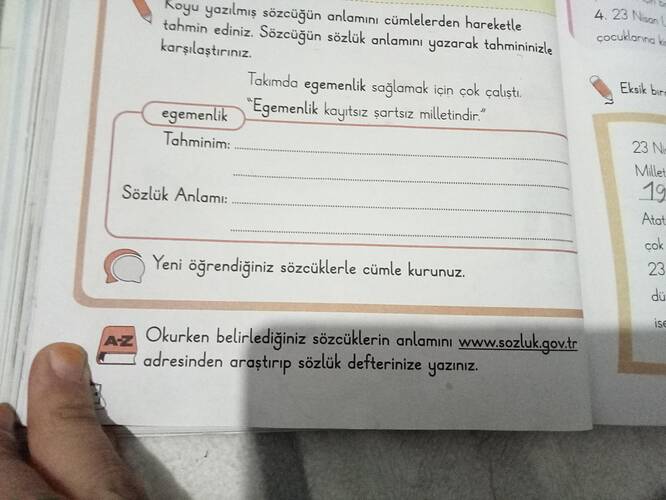 Koyu yazılmış sözcüğün anlamını cümlelerden hareketle
tahmin ediniz. Sözcüğün sözlük anlamını yazarak tahmininizle
karşılaştırınız.
Takımda egemenlik sağlamak için çok çalıştı.
"Egemenlik kayıtsız şartsız milletindir."
egemenlik
Tahminim:
Sözlük Anlamı:
Yeni öğrendiğiniz sözcüklerle cümle kurunuz.
A-Z
Okurken belirlediğiniz sözcüklerin anlamını www.sozluk.gov.tr
adresinden araştırıp sözlük defterinize yazınız.
4. 23 Nisan
çocuklarına
Eksik
23
Millet
19
Atat
çok
23
dü
ise